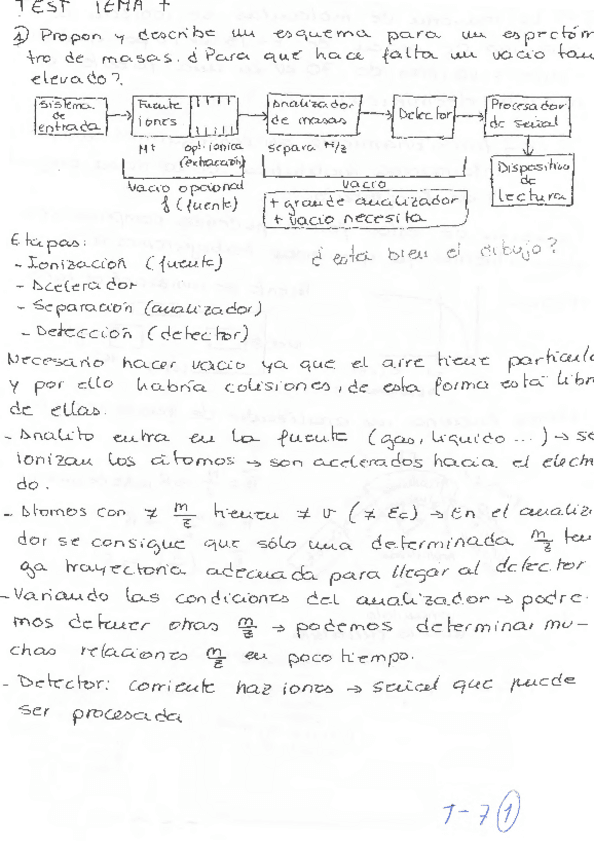 TEST TEMA 7
① Propon y describe un esquema para un espectóm
tro de masas. ¿Para que hace falta un vacio tan
elevado?.
Sistema de entrada
Fuente iones
Analizador de masas
Detector
Procesador de señal
M+
opt. iónica (extracción)
separa M/z
Dispositivo de lectura
vacio opcional
f (fuente)
vacio
+ grande analizador
+ vacio necesita
Etapas:
- Ionización (fuente)
- Acelerador
- Separación (analizador)
- Detección (detector)
¿está bien el dibujo?
Necesario hacer vacio ya que el aire tiene particula
y por ello habría colisiones, de esta forma está libr
de ellas.
- Analito entra en la fuente (gas, liquido ...) → se
ionizan los átomos → son acelerados hacia el elect
do.
- Atomos con ≠ m/z tienen ≠ v (≠ Ec) → En el analiz
dor se consigue que sólo una determinada m/z ten
ga trayectoria adecuada para llegar al detector
- Variando las condiciones del analizador → podre
mos detener otras m/z → podemos determinar mu-
chas relaciones m/z en poco tiempo.
- Detector: corriente haz iones → señal que puede
ser procesada
T-7 ①